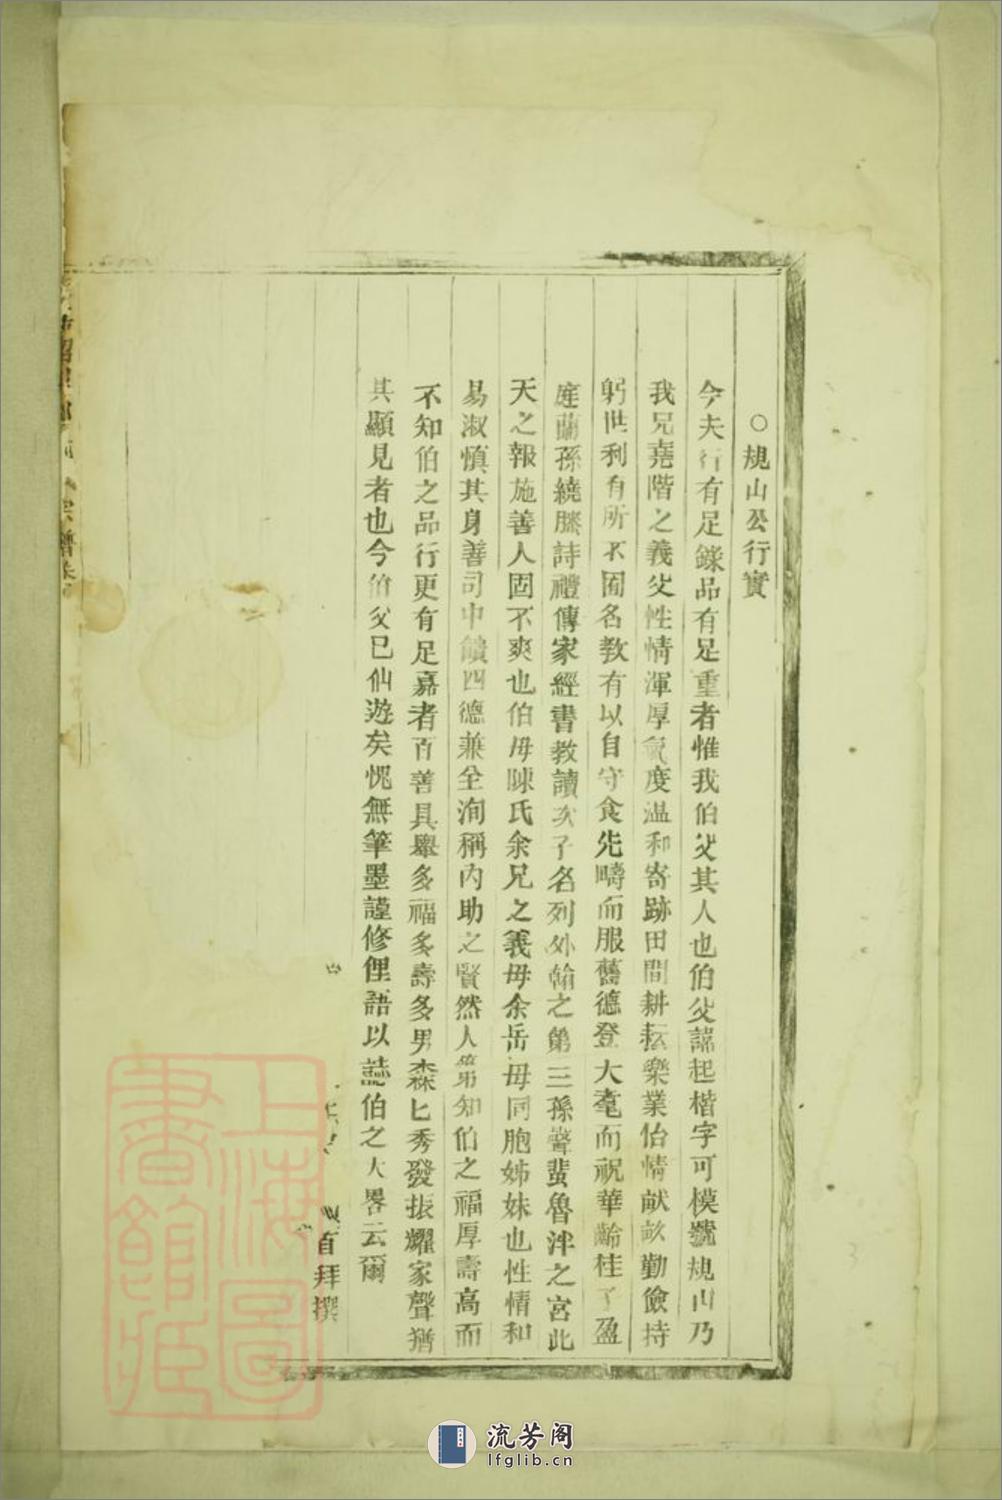 ○規山公行實
今夫行有足錄品有足重者惟我伯父其人也伯父諱起楷字可模號規山乃
我兄堯階之義父性情渾厚氣度溫和寄跡田間耕耘樂業怡情献畝勤儉持
躬世利有所不囿名教有以自守食先疇而服舊德登大耄而祝華齡桂子盈
庭蘭孫繞膝詩禮傳家經書教讀次子名列外翰之第三孫聲蜚魯泮之宮此
天之報施善人固不爽也伯母陳氏余兄之義母余岳母同胞姊妹也性情和
易淑慎其身善司中饋四德兼全洵稱內助之賢然人第知伯之福厚壽高而
不知伯之品行更有足嘉者百善具舉多福多壽多男森匕秀發振耀家聲猶
其顯見者也今伯父已仙遊矣愧無筆墨謹修俚語以誌伯之大畧云爾
首拜撰
上海圖書館藏
流芳阁
lfglib.cn